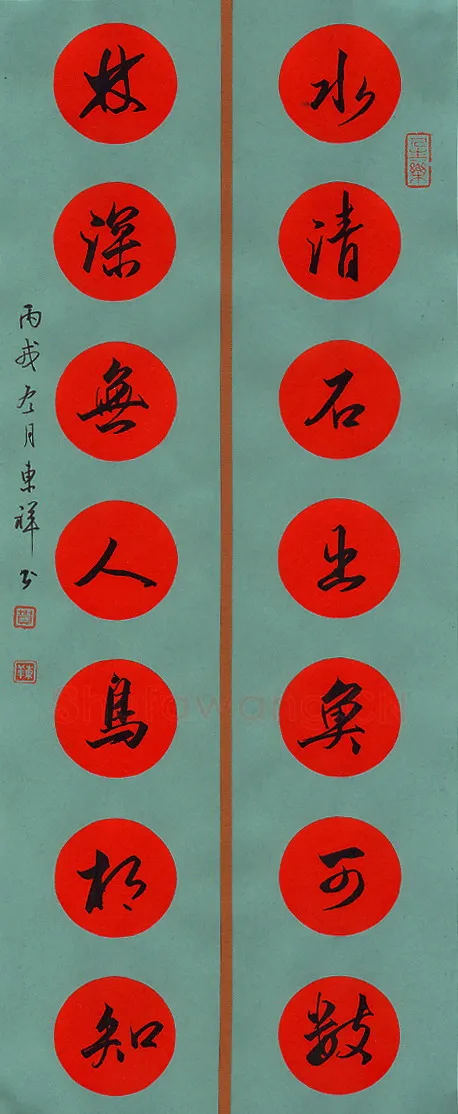 水清石出魚可數
林深無人鳥相知
丙戌冬月東祥书